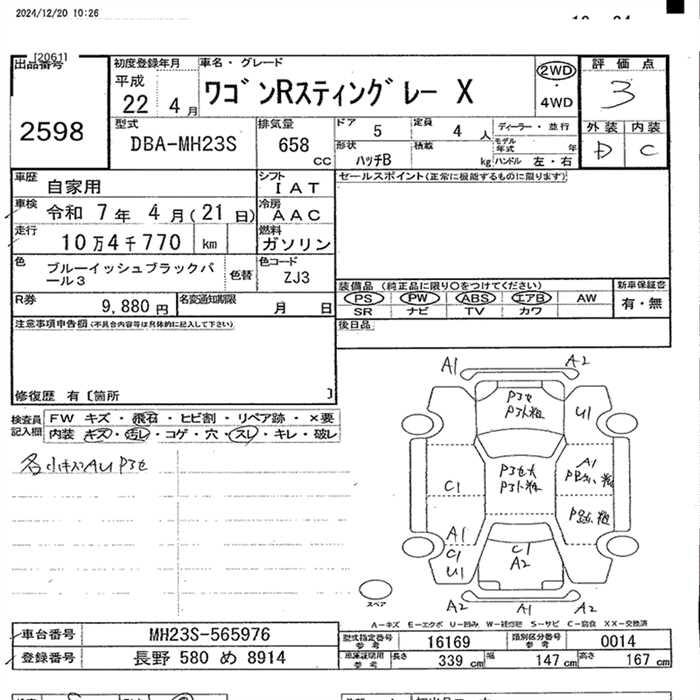 2024/12/20 10:26
[2061]
出品番号
2598
初度登録年月
平成
22年 4月
車名・グレード
ワゴンRスティングレー X
2WD
・
4WD
評価点
3
外装 内装
D C
型式
DBA-MH23S
排気量
658 cc
ドア 5
定員 4 人
ディーラー・並行
形状 ハッチB
積載 kg
モデル年式 年
ハンドル 左・右
車歴 自家用
シフト IAT
セールスポイント(正常に機能するものに限ります)
車検 令和 7年 4月(21日)
冷房 AAC
走行 10万4千770 km
燃料 ガソリン
色 ブルーイッシュブラックパール3
色替
色コード ZJ3
装備品 (純正品に限り〇をつけてください)
PS PW ABS エアB AW
SR ナビ TV カワ
新車保証書
有・無
R券 9,880 円
名変通知期限 月 日
後日品
注意事項申告欄(不具合内容等は具体的に記入して下さい)
修復歴 有〔箇所 〕
検査員記入欄
FW キズ・飛石・ヒビ割・リペア跡・×要
内装 キズ・汚レ・コゲ・穴・スレ・キレ・破レ
各小キズAU P3セ
A1 A2
P3セ
P3ト粗
U1
C1
P3セ大
P3ト粗
A1
A1
C1
U1
C1
A2
スペア
A2 A1 A2
A-キズ E-エクボ U-凹み W-補修跡 S-サビ C-腐食 XX-交換済
車台番号 MH23S-565976
登録番号 長野 580 め 8914
型式指定番号 参考 16169
類別区分番号 参考 0014
参考
長さ 339 cm
幅 147 cm
高さ 167 cm